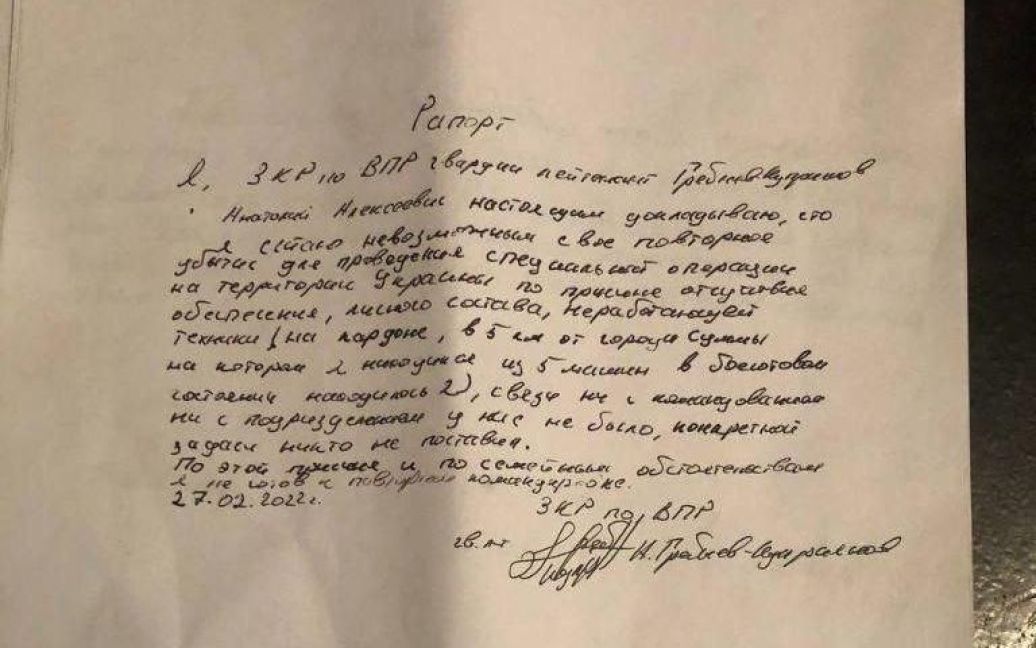 Рапорт
Я, ЗКР по ВПР гвардии лейтенант
Анатолий Алексеевич настоящим докладываю, что
я считаю невозможным свое повторное
убытие для проведения специальной операции
на территории Украины по причине отсутствие
обеспечения, личного состава, неработающей
техники (на кордоне, в 5 км от города Сумы
на котором я находился из 5 машин в боеготовом
состоянии находилось 2), связи ни с командованием
ни с подразделением у нас не было, конкретной
задачи никто не поставил.
По этой причине и по семейным обстоятельствам
я не готов к командировке.
27.02.2022г.
ЗКР по ВПР
гв. л-т